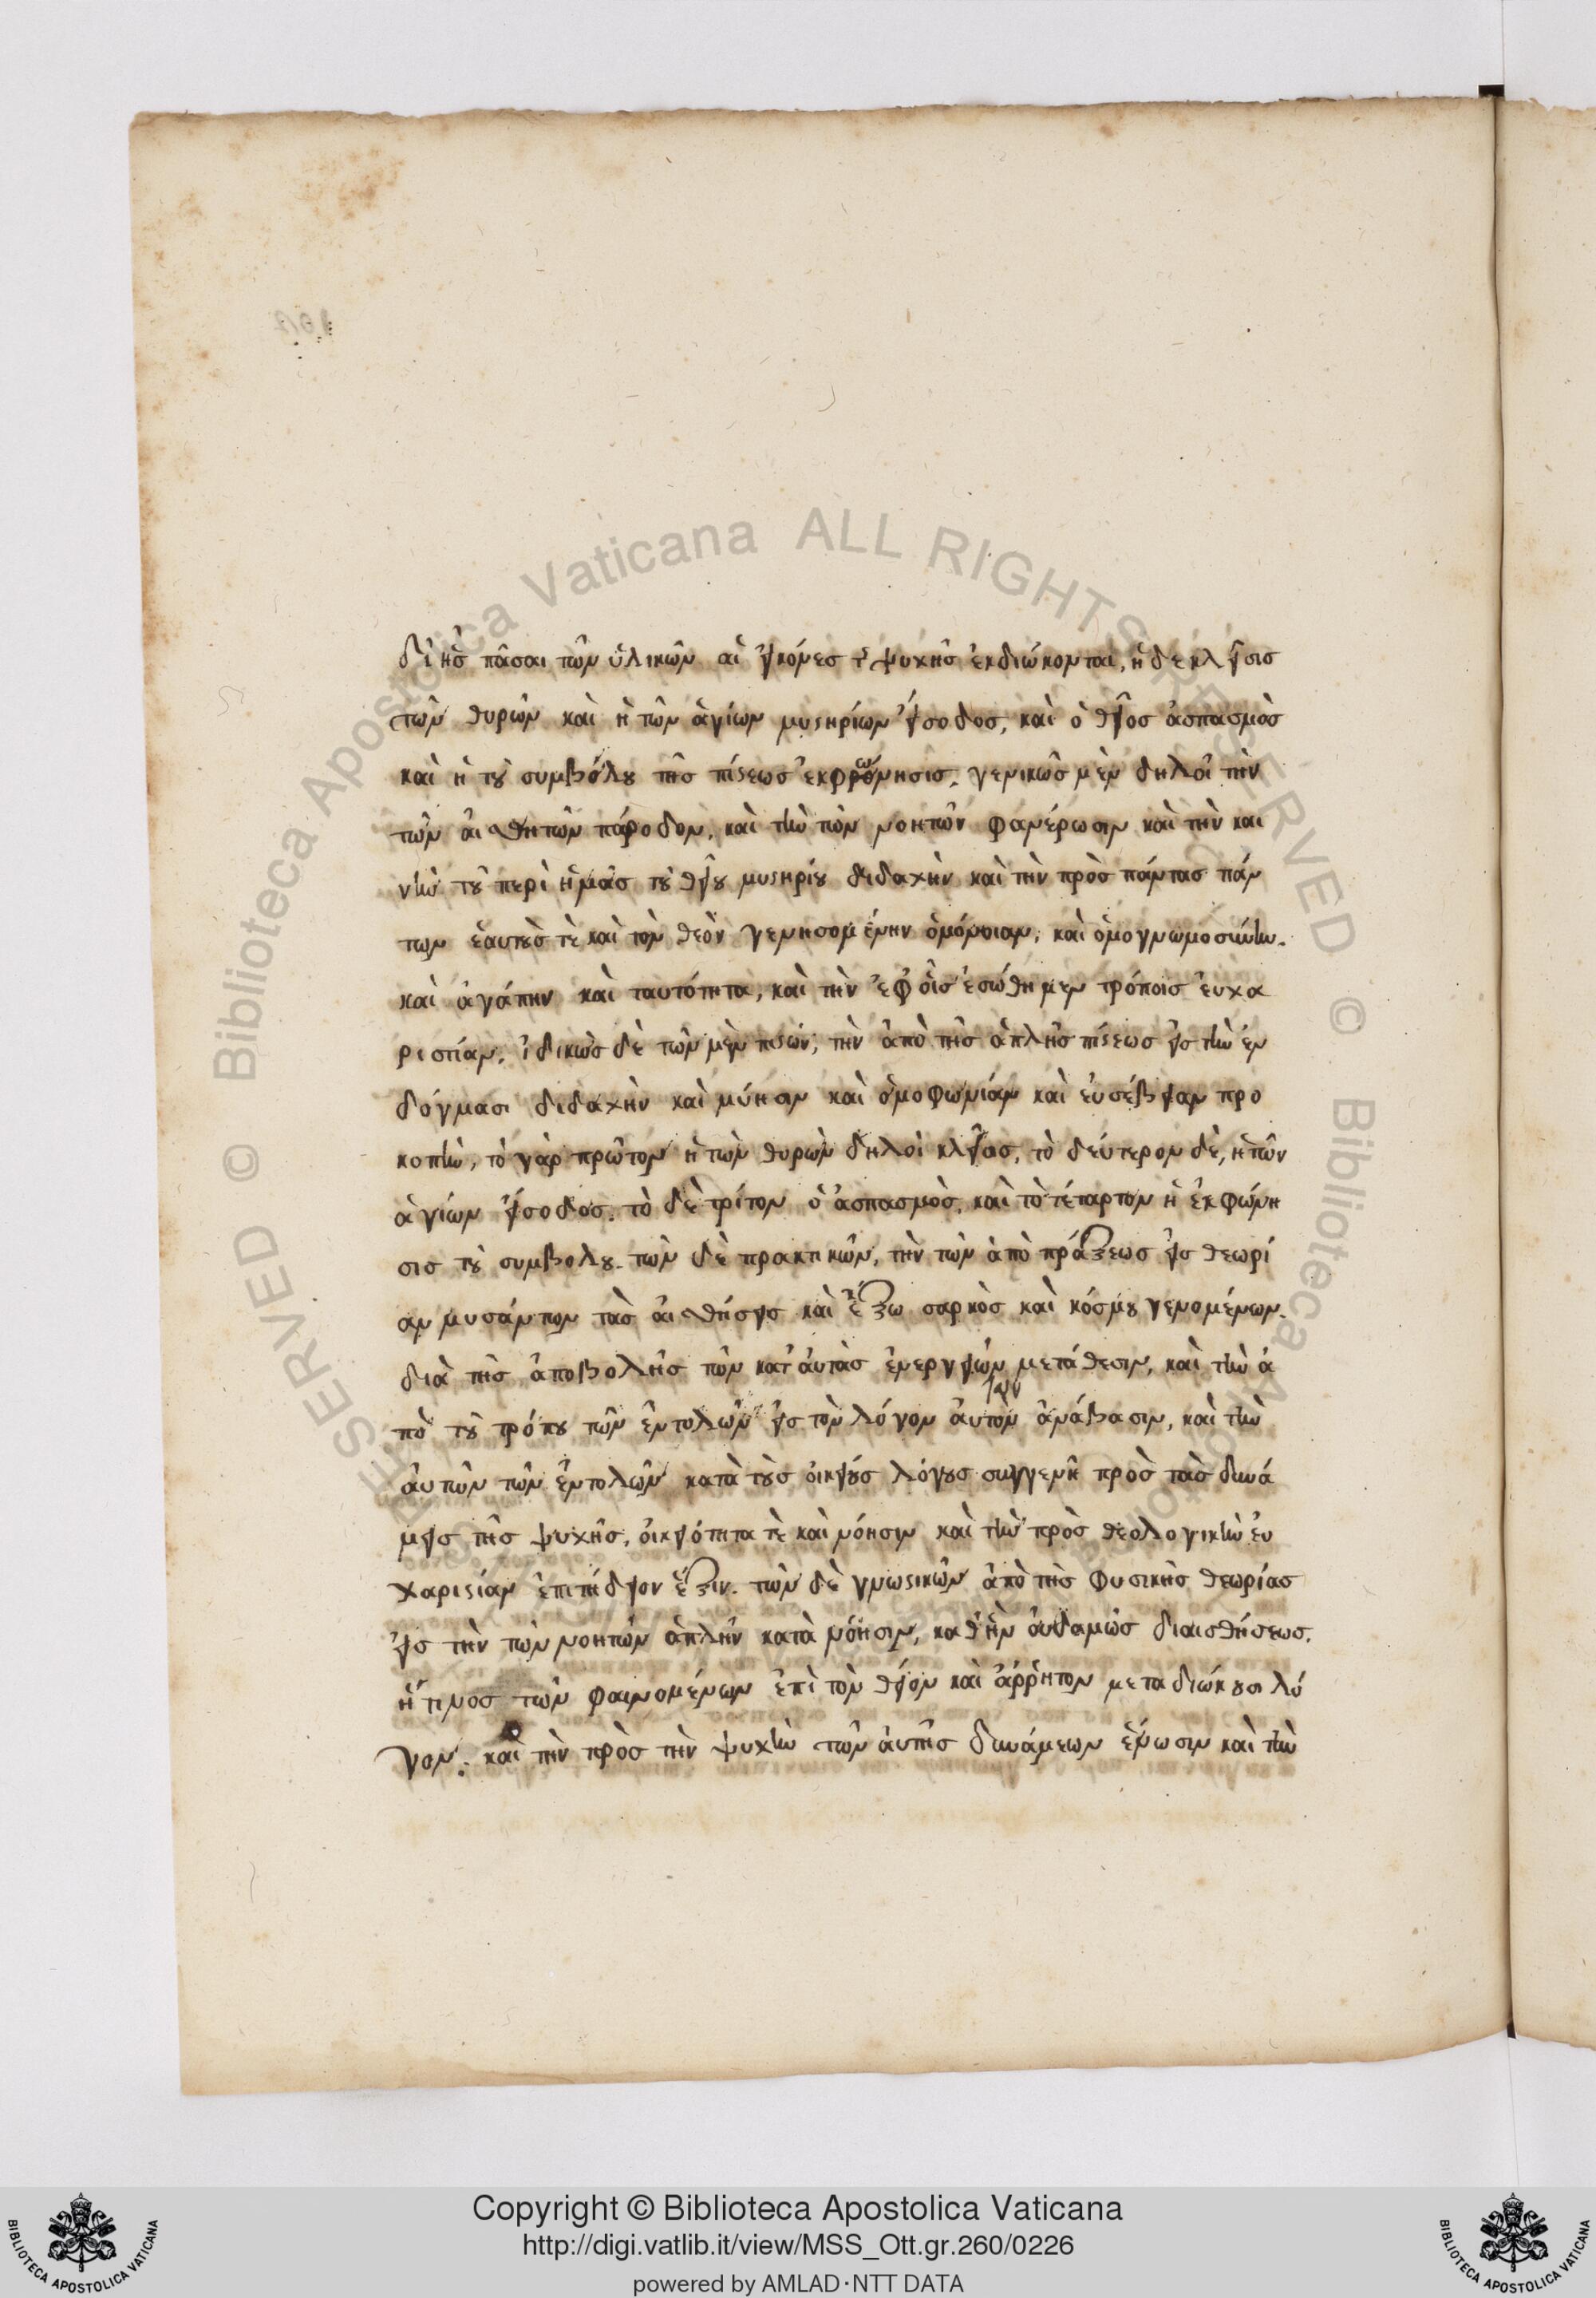 δι ἧς πᾶσαι τῶν ὑλικῶν αἱ εἰκόνες τ ψυχῆς ἐκδιώκονται, ἡ δε κλεῖσις
τῶν θυρῶν καὶ ἡ τῶν ἁγίων μυστηρίων εἴσοδος, καὶ ὁ θεῖος ἀσπασμὸς
καὶ ἡ τοῦ συμβόλου τῆς πίστεως ἐκφώνησις, γενικῶς μὲν δηλοῖ τὴν
τῶν αἰσθητῶν πάροδον, καὶ τὴν τῶν νοητῶν φανέρωσιν καὶ τὴν και
νὴν τοῦ περὶ ἡμᾶς τοῦ θείου μυστηρίου διδαχὴν καὶ τὴν πρὸς πάντας πάν
των ἑαυτοὺς τὲ καὶ τὸν θεὸν γενησομένην ὁμόνοιαν, καὶ ὁμογνωμοσύνην.
καὶ ἀγάπην καὶ ταυτότητα, καὶ τὴν ἐφ οἷς ἐσώθημεν τρόποις εὐχα
ριστίαν, ἰδικῶς δὲ τῶν μὲν πιστῶν, τὴν ἀπὸ τῆς ἁπλῆς πίστεως εἰς τὴν ἐν
δόγμασι διδαχὴν καὶ μύησιν καὶ ὁμοφωνίαν καὶ εὐσέβειαν προ
κοπὴν, τὸ γὰρ πρῶτον ἡ τῶν θυρῶν δηλοῖ κλεῖσις, τὸ δεύτερον δὲ, ἡ τῶν
ἁγίων εἴσοδος. τὸ δὲ τρίτον ὁ ἀσπασμὸς, καὶ τὸ τέταρτον ἡ ἐκφώνη
σις τοῦ συμβολου. τῶν δὲ πρακτικῶν, τὴν τῶν ἀπὸ πράξεως εἰς θεωρί
αν μυσάντων τὰς αἰσθήσεις καὶ ἔξω σαρκὸς καὶ κόσμου γενομένων.
διὰ τῆς ἀποβολῆς τῶν κατ αὐτὰς ἐνεργειῶν μετάθεσιν, καὶ τὴν ἀ
πὸ τοῦ τρόπου τῶν ἐντολῶν εἰς τὸν λόγον αὐτῶν ἀνάβασιν, καὶ τὴν
αὐτῶν τῶν ἐντολῶν κατὰ τοὺς οἰκείους λόγους συγγενῆ πρὸς τὰς δυνά
μεις τῆς ψυχῆς, οἰκειότητα τὲ καὶ νόησιν καὶ τὴν πρὸς θεολογικὴν εὐ
χαριστίαν ἐπιτήδειον ἕξιν. τῶν δὲ γνωστικῶν ἀπὸ τῆς φυσικῆς θεωρίας
εἰς τὴν τῶν νοητῶν ἁπλῆν κατὰ νόησιν, καθ ἣν οὐδαμῶς δι αἰσθήσεως.
ἤ τινος τῶν φαινομένων ἐπὶ τὸν θεῖον καὶ ἄρρητον μεταδιώκουσι λό
γον. καὶ τὴν πρὸς τὴν ψυχὴν τῶν αὐτῆς δυνάμεων ἕνωσιν καὶ τὴν
Copyright © Biblioteca Apostolica Vaticana
http://digi.vatlib.it/view/MSS_Ott.gr.260/0226
powered by AMLAD·NTT DATA